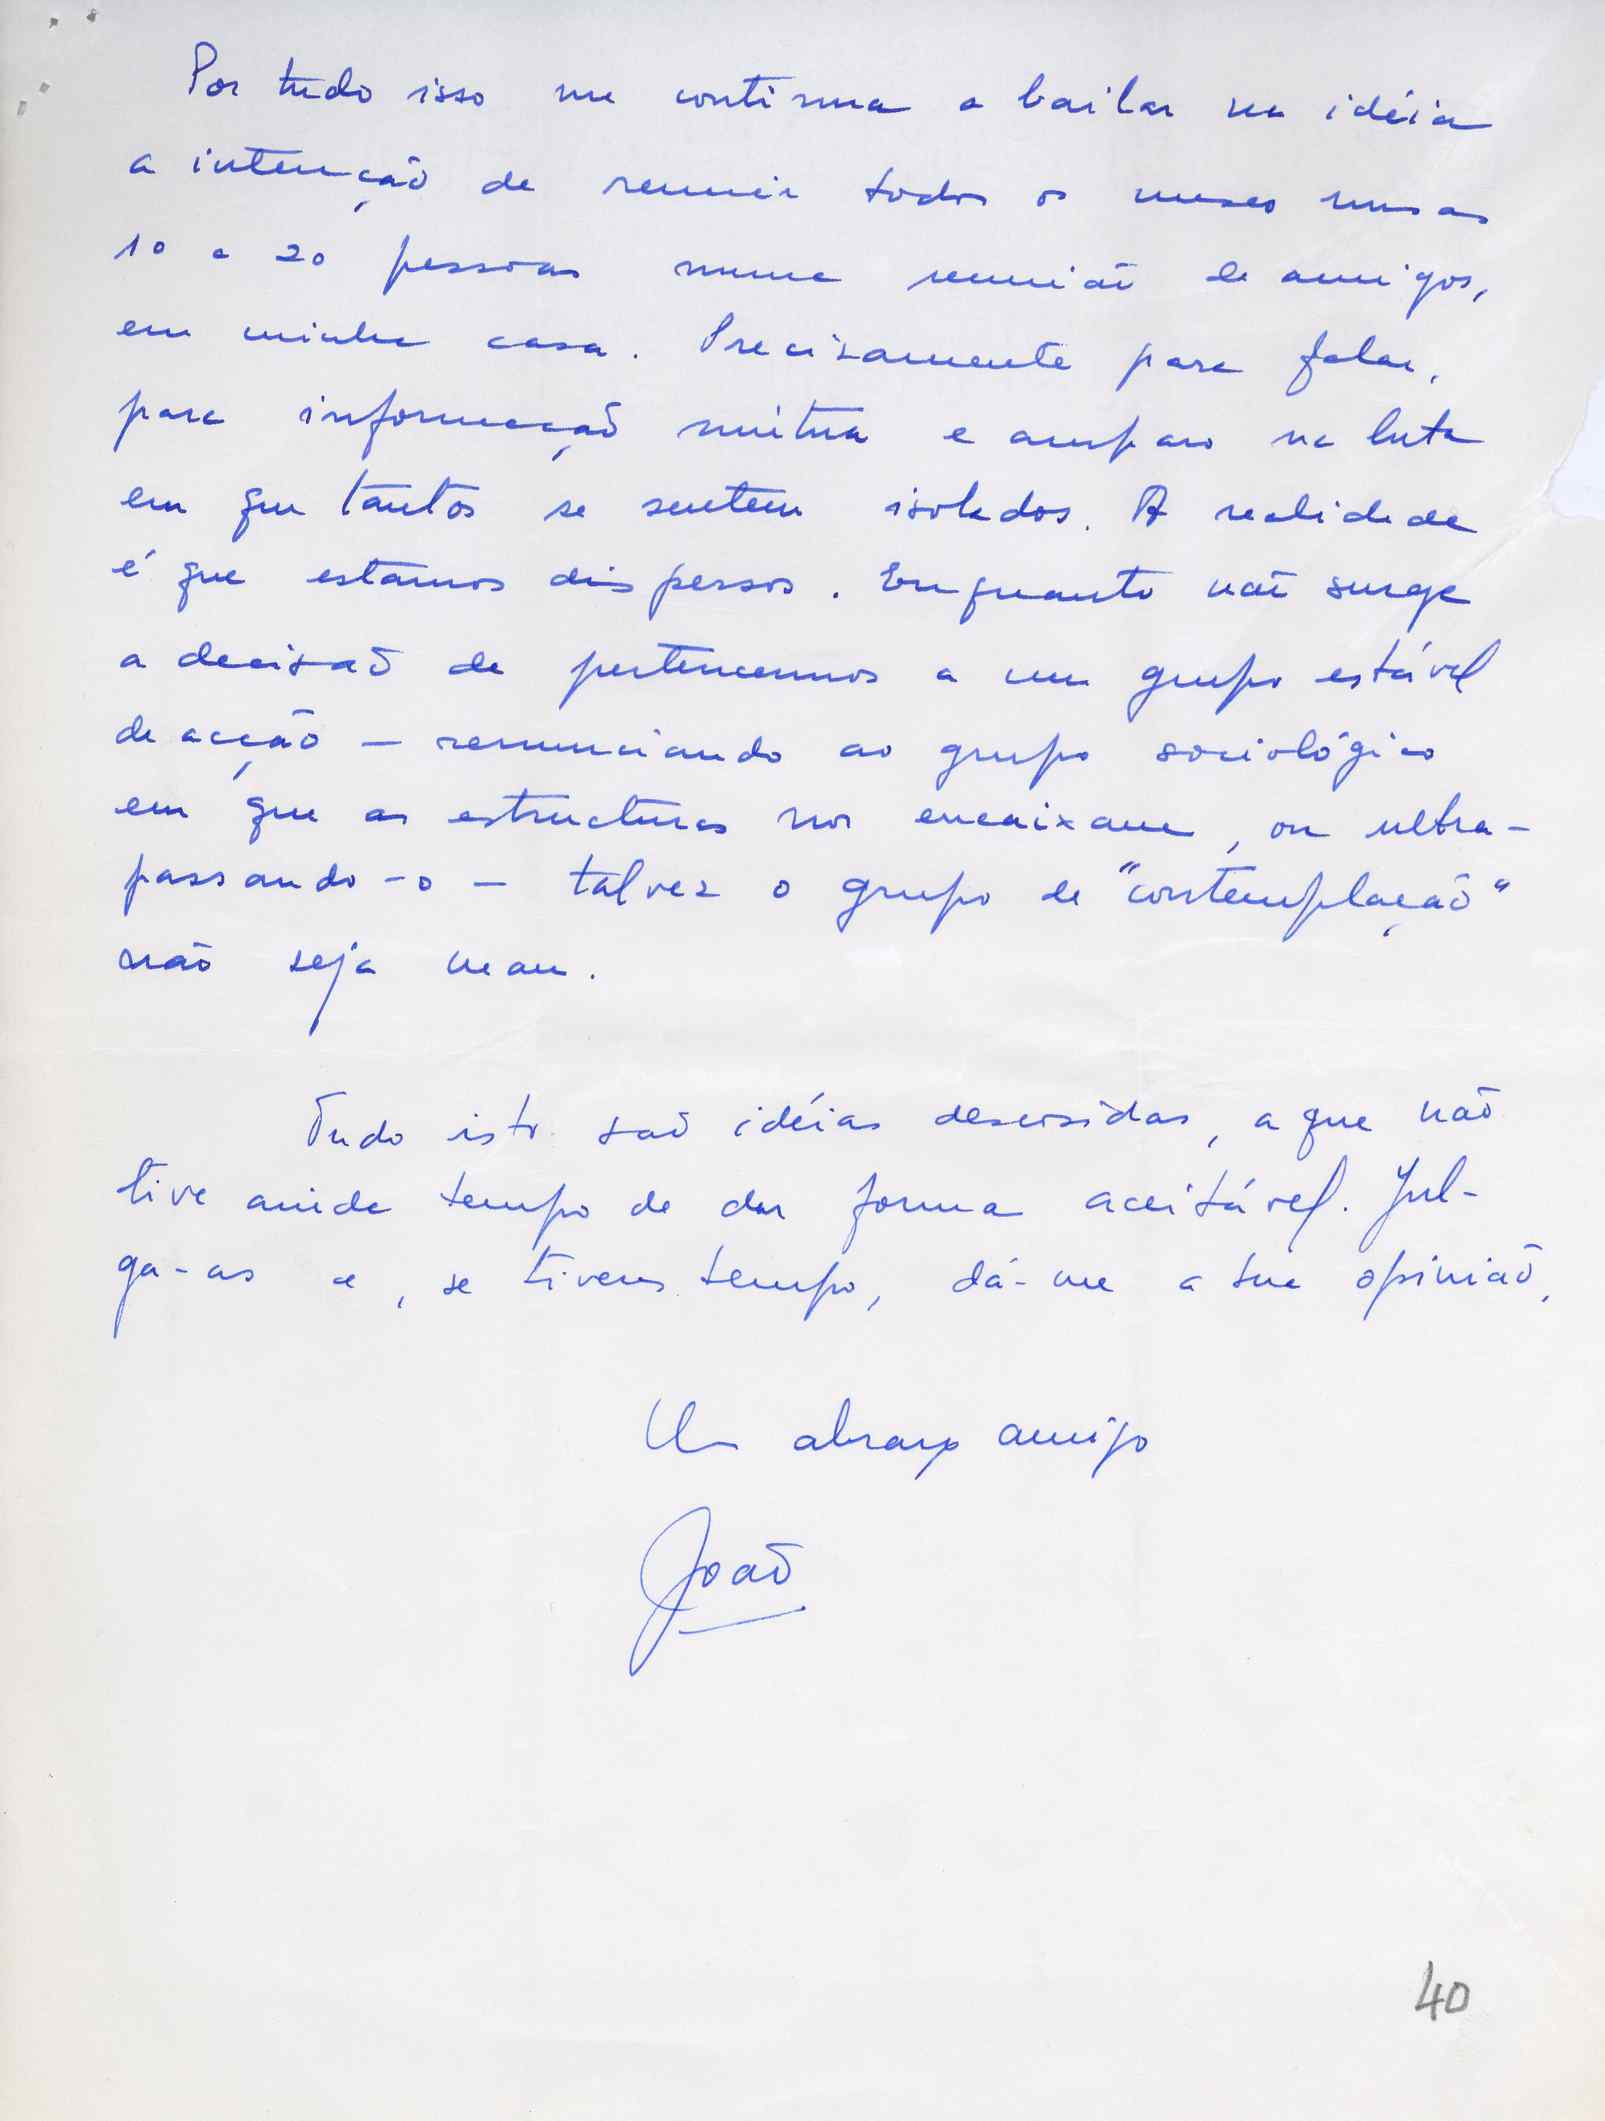 Por tudo isso me continua a bailar na idéia
a intenção de reunir todos os meses umas
10 a 20 pessoas numa reunião de amigos,
em minha casa. Precisamente para falar,
para informação mútua e amparo na luta
em que tantos se sentem isolados. A realidade
é que estamos dispersos. Enquanto não surge
a decisão de pertencermos a um grupo estável
de acção — renunciando ao grupo sociológico
em que as estructuras nos encaixam, ou ultra-
passando-o — talvez o grupo de "contemplação"
não seja mau.
Tudo isto são idéias descosidas, a que não
tive ainda tempo de dar forma aceitável. Jul-
ga-as e, se tiveres tempo, dá-me a tua opinião,
Um abraço amigo
João
40